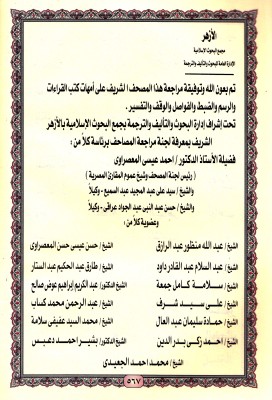 الأزهر
مجمع البحوث الإسلامية
الإدارة العامة للبحوث والتأليف والترجمة
تم بعون الله وتوفيقه مراجعة هذا المصحف الشريف على أمهات كتب القراءات
والرسم والضبط والفواصل والوقف والتفسير .
تحت إشراف إدارة البحوث والتأليف والترجمة بجمع البحوث الإسلامية بالأزهر
الشريف بمعرفة لجنة مراجعة المصاحف برئاسة كلاً من :
فضيلة الأستاذ الدكتور / أحمد عيسى المعصراوى
( رئيس لجنة المصحف وشيخ عموم المقارئ المصرية )
والشيخ / سيد على عبد المجيد عبد السميع - وكيلاً
والشيخ / حسن عبد النبى عبد الجواد عراقى - وكيلاً
وعضوية كلاً من :
الشيخ / عبد الله منظور عبد الرازق الشيخ / حسن عيسى حسن المعصراوى
الشيخ / عبد السلام عبد القادر داود الشيخ / طارق عبد الحكيم عبد الستار
الشيخ / سلامة كامل جمعة الشيخ الدكتور / عبد الكريم إبراهيم عوض صالح
الشيخ / على سيد شرف الشيخ / عبد الرحمن محمد كساب
الشيخ / حمادة سليمان عبد العال الشيخ / محمد السيد عفيفى سلامة
الشيخ / أحمد زكى بدر الدين الشيخ الدكتور / بشير أحمد دعبس
الشيخ / محمد أحمد الجعيدى
٥٦٧